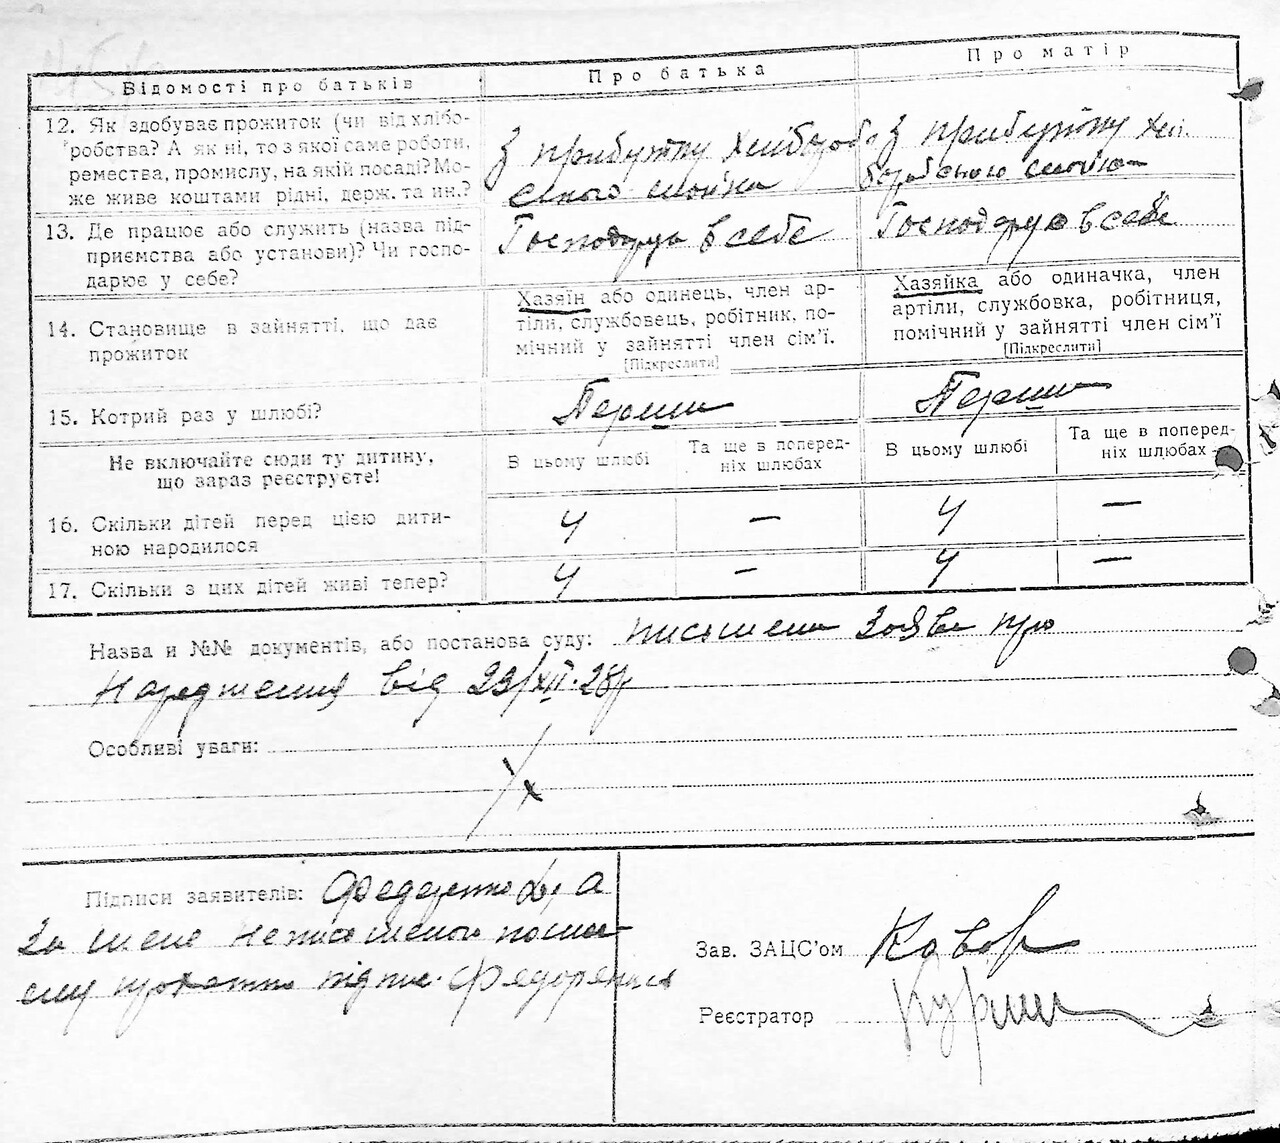 Відомості про батьків
Про батька
Про матір
12. Як здобуває прожиток (чи від хлібо-
робства? А як ні, то з якої саме роботи,
ремества, промислу, на якій посаді? Мо-
же живе коштами рідні, держ. та ин.?
З прибутку хліборобсь
З прибутку хлі
боробського
13. Де працює або служить (назва під-
приємства або установи)? Чи госпо-
дарює у себе?
Господарує в себе
Господарує в себе
14. Становище в зайнятті, що дає
прожиток
Хазяїн або одинець, член ар-
тіли, службовець, робітник, по-
мічний у зайнятті член сім’ї.
[Підкреслити]
Хазяйка або одиначка, член
артіли, службовка, робітниця,
помічний у зайнятті член сім’ї
[Підкреслити]
15. Котрий раз у шлюбі?
Перший
Перший
Не включайте сюди ту дитину,
що зараз реєструєте!
В цьому шлюбі
Та ще в поперед-
ніх шлюбах
В цьому шлюбі
Та ще в поперед-
ніх шлюбах
16. Скільки дітей перед цією дити-
ною народилося
4 — 4 —
17. Скільки з цих дітей живі тепер?
4 — 4 —
Назва и №№ документів, або постанова суду: письмена заява про
народження від 23/XII-28р
Особливі уваги:
Підписи заявителів: Федоренко, а
за мене неписьменого
підпис Федоренко
Зав. ЗАЦС’ом
Реєстратор